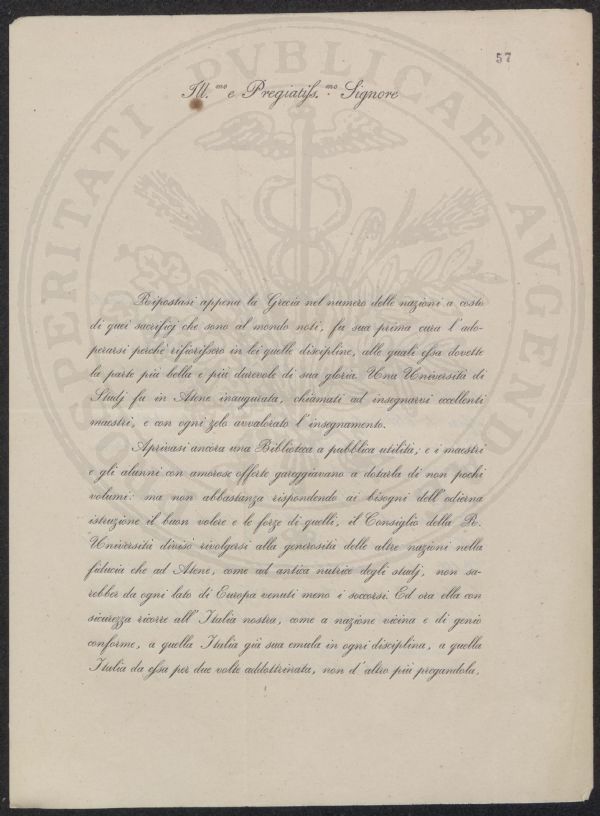 57
Ill.mo e Pregiatiss.mo Signore
Ripostasi appena la Grecia nel numero delle nazioni a costo
di quei sacrifizj che sono al mondo noti, fu sua prima cura l'ado-
perarsi perchè rifiorissero in lei quelle discipline, alle quali essa dovette
la parte più bella e più durevole di sua gloria. Una Università di
Studj fu in Atene inaugurata, chiamati ad insegnarvi eccellenti
maestri, e con ogni zelo avvalorato l'insegnamento.
Aprivasi ancora una Biblioteca a pubblica utilità; e i maestri
e gli alunni con amorose offerte gareggiavano a dotarla di non pochi
volumi: ma non abbastanza rispondendo ai bisogni dell'odierna
istruzione il buon volere e le forze di quelli, il Consiglio della R.
Università divisò rivolgersi alla generosità delle altre nazioni nella
fiducia che ad Atene, come ad antica nutrice degli studj, non sa-
rebber da ogni lato di Europa venuti meno i soccorsi. Ed ora ella con
sicurezza ricorre all'Italia nostra, come a nazione vicina e di genio
conforme, a quella Italia già sua emula in ogni disciplina, a quella
Italia da essa per due volte addottrinata, non d'altro più pregandola,
PROSPERITATI PVBLICAE AVGENDAE